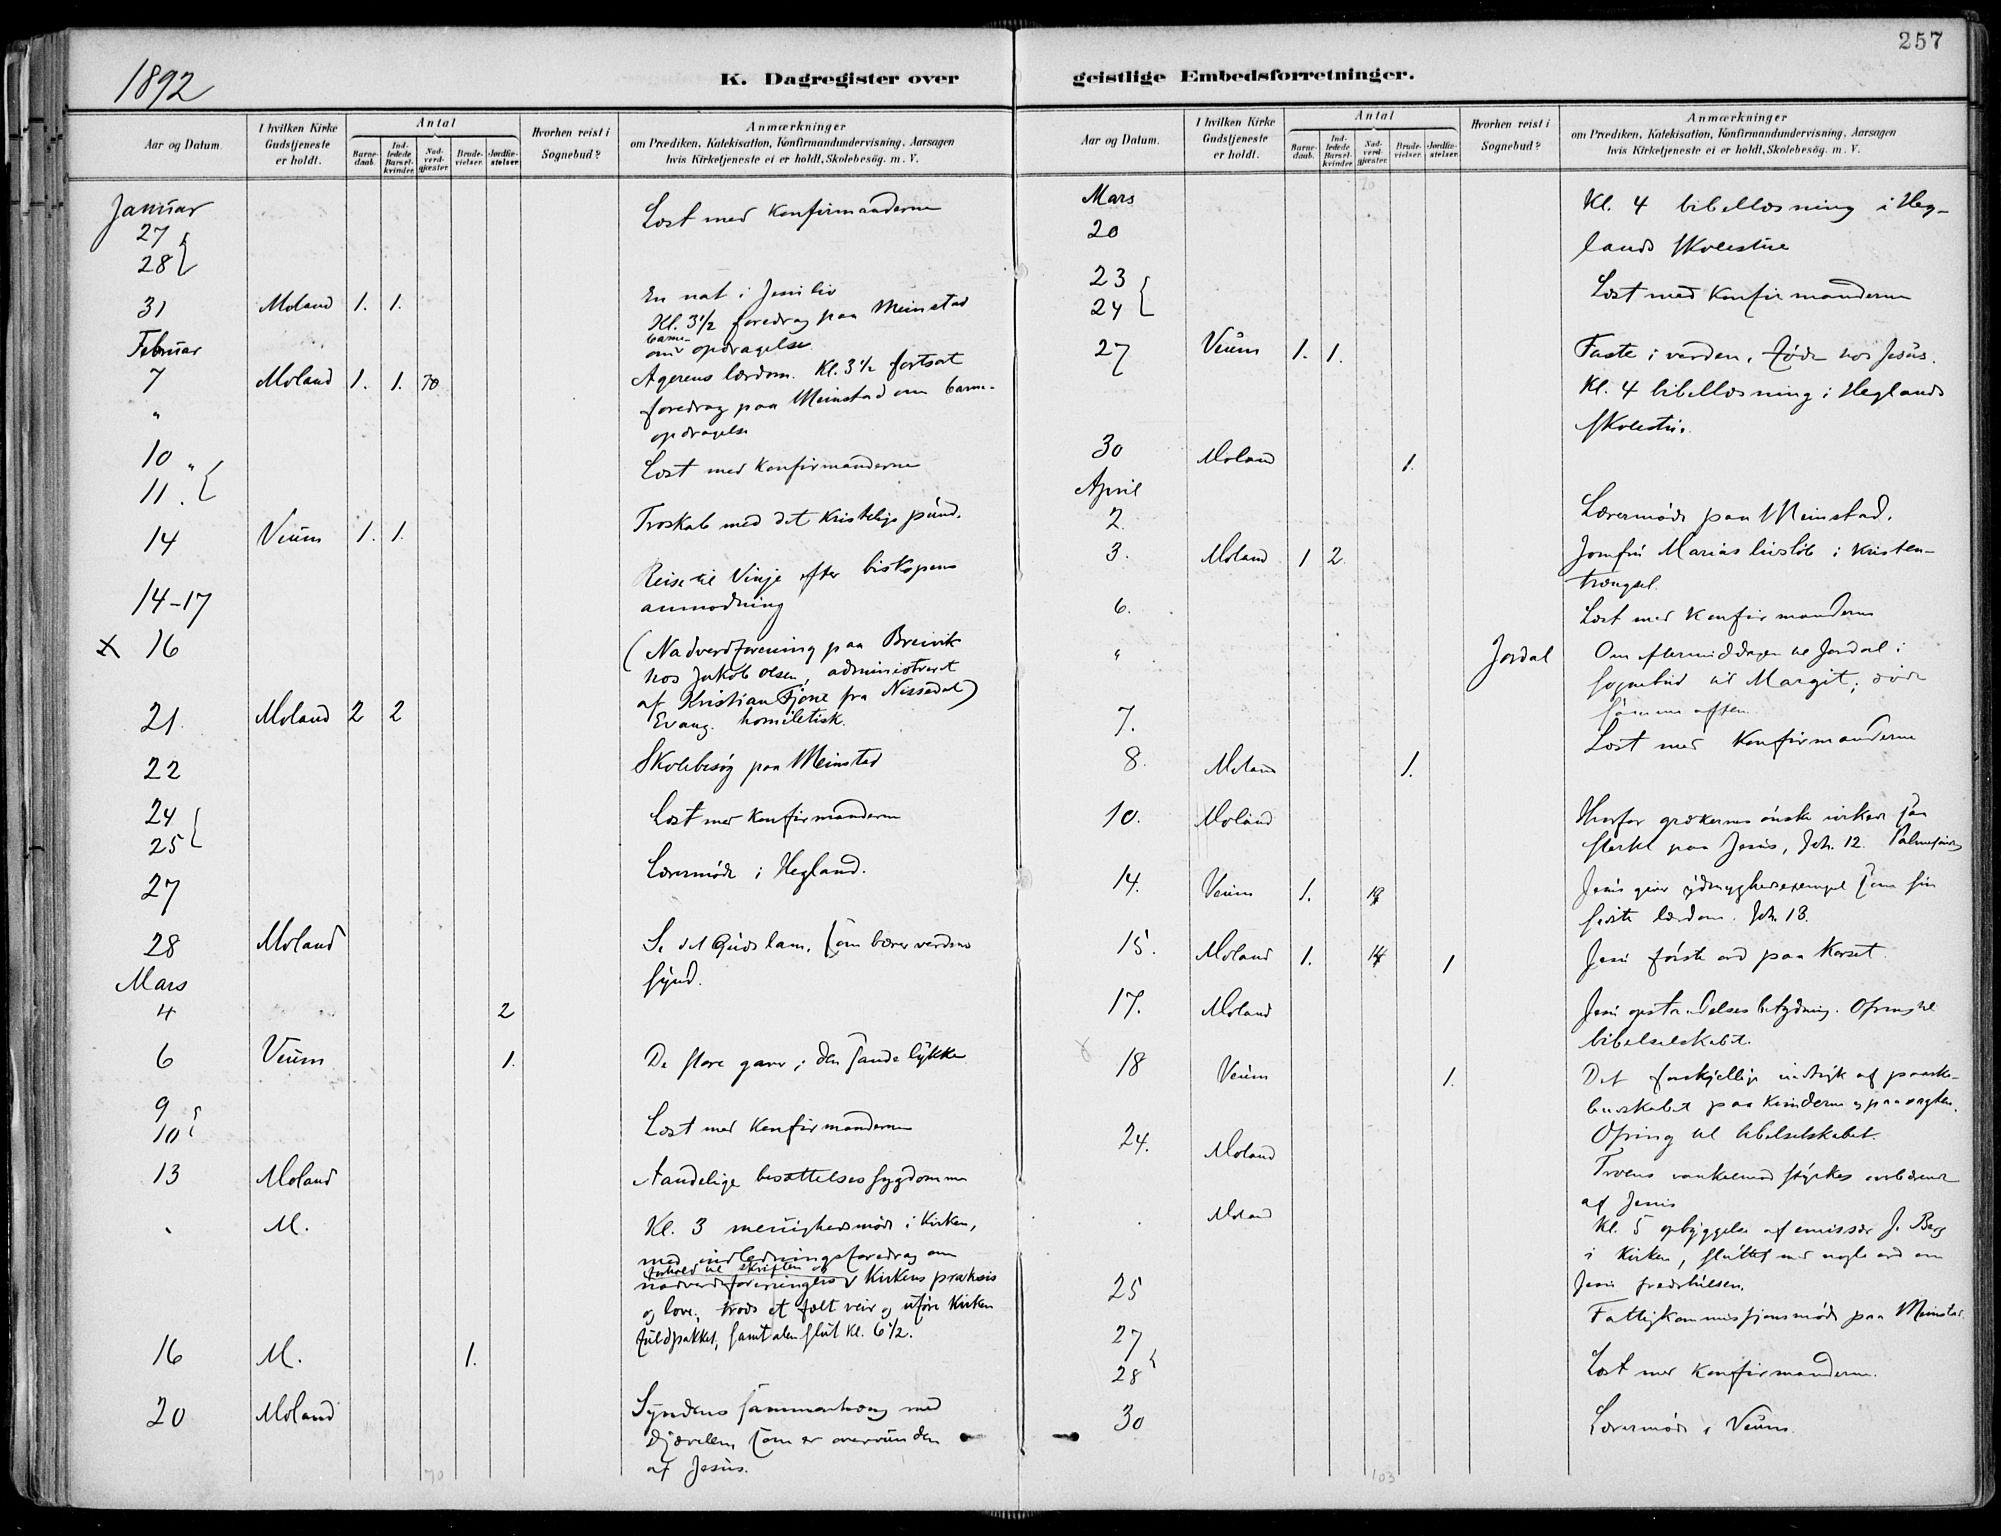 257
1892
K. Dagregister over geistlige Embedsforretninger.
Aar og Datum.
I hvilken Kirke Gudstjeneste er holdt.
Antal
Barne-daab.
Ind-ledede Barsel-kvinder.
Nad-verd-gjæster.
Brude-vielser.
Jordfæ-stelser.
Hvorhen reist i Sognebud?
Anmærkninger
om Prædiken, Katekisation, Konfirmandundervisning, Aarsagen
hvis Kirketjeneste ei er holdt, Skolebesög. m. V.
Januar
27
28
Læst med Konfirmanderne
31 Moland 1. 1.
En nat i Jesu liv
Kl. 3 1/2 foredrag paa Meinstad
om barneopdragelse
Februar
7 Moland 1. 1. 70
Agerens lærdom. Kl. 3 1/2 fortsat
" foredrag paa Meinstad om barne-
opdragelse
10 "
11.
Læst med Konfirmanderne
14 Veum 1. 1.
Troskab med det kristelige pund.
14-17
Reise til Vinje efter biskopens
anmodning
x 16
(Nadverdforening paa Breivik
hos Jakob Olsen, administreret
af Kristian Fjone fra Nissedal)
21. Moland 2 2
Evang. homiletisk.
22
Skolebesøg paa Meinstad
24
25
Læst med Konfirmanderne
27
Lærermøde i Hegland.
28 Moland
Se det Guds lam, som bærer verdens
synd.
Mars
4 2
6 Veum 1.
De store gaver; den sande lykke
9
10
Læst med Konfirmanderne
13 Moland
Aandelige besættelses sygdomme
" M.
Kl. 3 menighedsmøde i Kirken,
med indledningsforedrag om
nadverdforeningers forhold til skriften og Kirkens praksis
og love; trods et fælt veir og uføre Kirken
fuldpakket, samtalen slut kl. 6 1/2.
16 M. 1.
20 Moland
Syndens sammenhæng med
Djævelen, som er overvunden
af Jesus.
70
Aar og Datum.
I hvilken Kirke Gudstjeneste er holdt.
Antal
Barne-daab.
Ind-ledede Barsel-kvinder.
Nad-verd-gjæster.
Brude-vielser.
Jordfæ-stelser.
Hvorhen reist i Sognebud?
Anmærkninger
om Prædiken, Katekisation, Konfirmandundervisning, Aarsagen
hvis Kirketjeneste ei er holdt, Skolebesög. m. V.
70
Mars
20
Kl. 4 bibellæsning i Heg-
lands skolestue
23
24
Læst med Konfirmanderne
27 Veum 1. 1.
Faste i verden, føde hos Jesus.
Kl. 4 bibellæsning i Heglands
skolestue.
30 Moland 1.
April
2.
Lærermøde paa Meinstad.
3. Moland 1 2.
Jomfru Marias livsløb i kristen-
trængsel.
6.
Læst med Konfirmanderne
" Jordal
Om eftermiddagen til Jordal i
sognebud til Margit; døde
samme aften.
7.
Læst med Konfirmanderne
8. Moland 1.
10. Moland
Hvorfor grækernes ønske virkede saa
sterkt paa Jesus, Joh. 12. Palmesøndag
14. Veum 1.
Jesus giver ydmyghedsexempel som sin
sidste lærdom. Joh. 13.
15. Moland 1. 1
Jesu første ord paa Korset.
17. Moland
Jesu opstandelses betydning. Ofring til
bibelselskabet.
18 Veum 1.
Det forskjellige indtryk af paaske-
budskabet paa kvinderne og paa vagten.
Ofring til bibelselskabet.
24. Moland
Troens vankelmod styrkes
af Jesus
Moland
Kl. 5 opbyggelse af emissær J. Berg
i Kirken, sluttet med nogle ord om
Jesu fredshilsen.
25
Fattigkommissjonsmøde paa Meinstad.
27
28
Læst med Konfirmanderne.
30
Lærermøde i Veum.
103